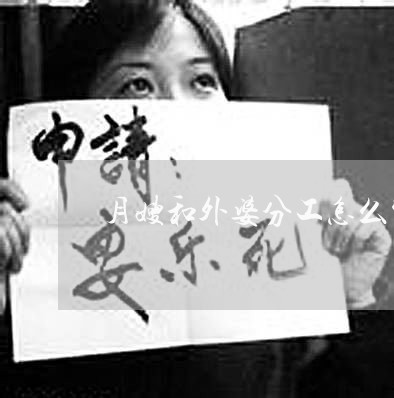 申請：
月嫂和外婆分工怎么
安乐死